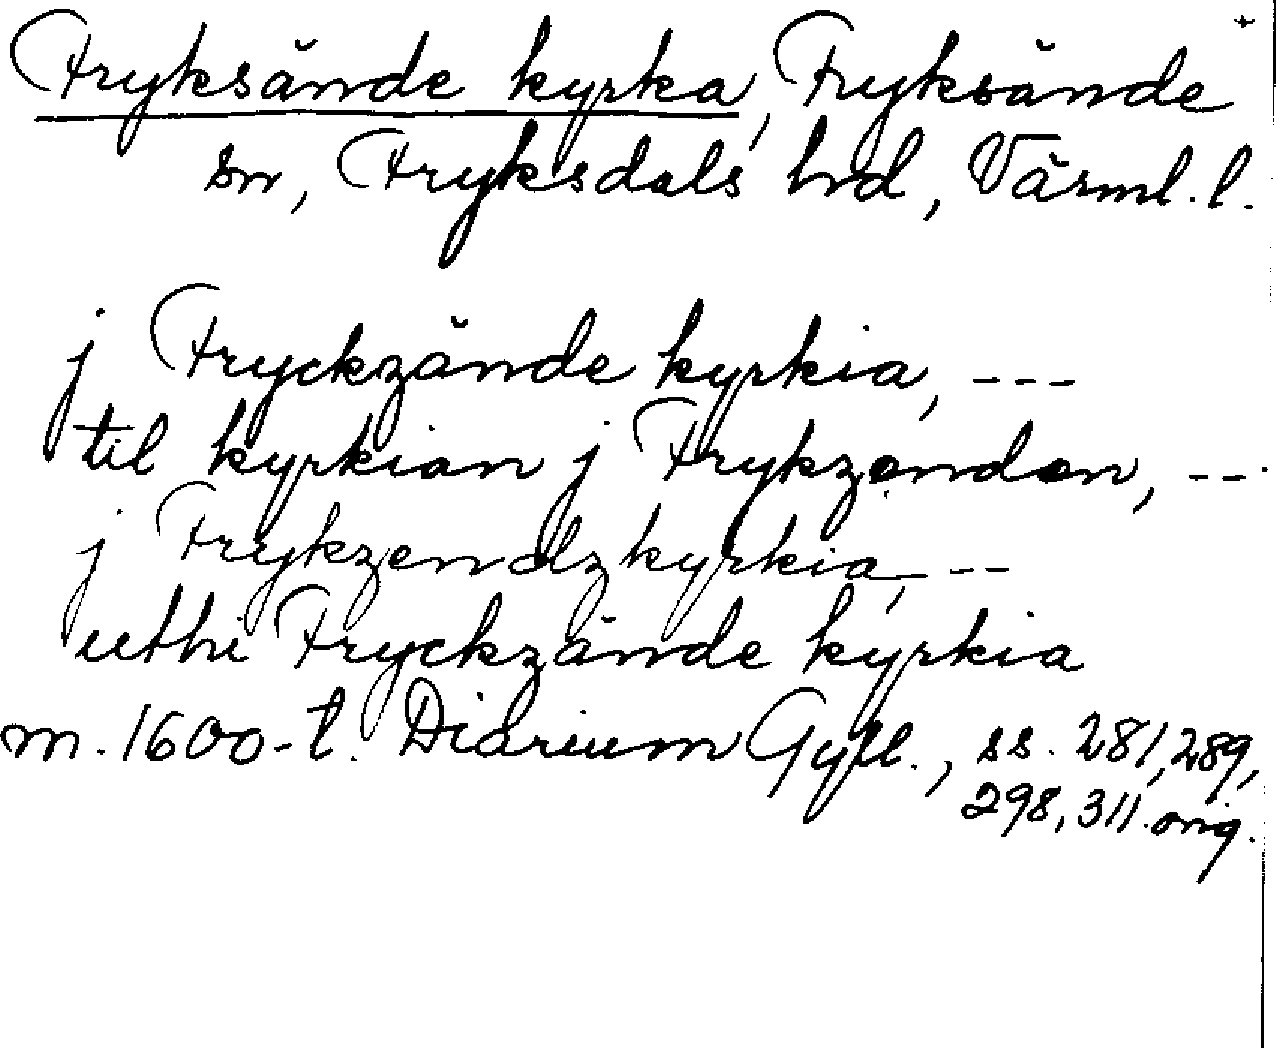 +
Fryksände kyrka, Fryksände
sn, Fryksdals hrd, Värml. l.
j Fryckzände kyrkia, ---
til kyrkian j Frykzenden, --
j Frykzendzkyrkia, ---
uthi Fryckzände kyrkia
m. 1600-t. Diarium Gyll., ss. 281, 289,
298, 311. orig.